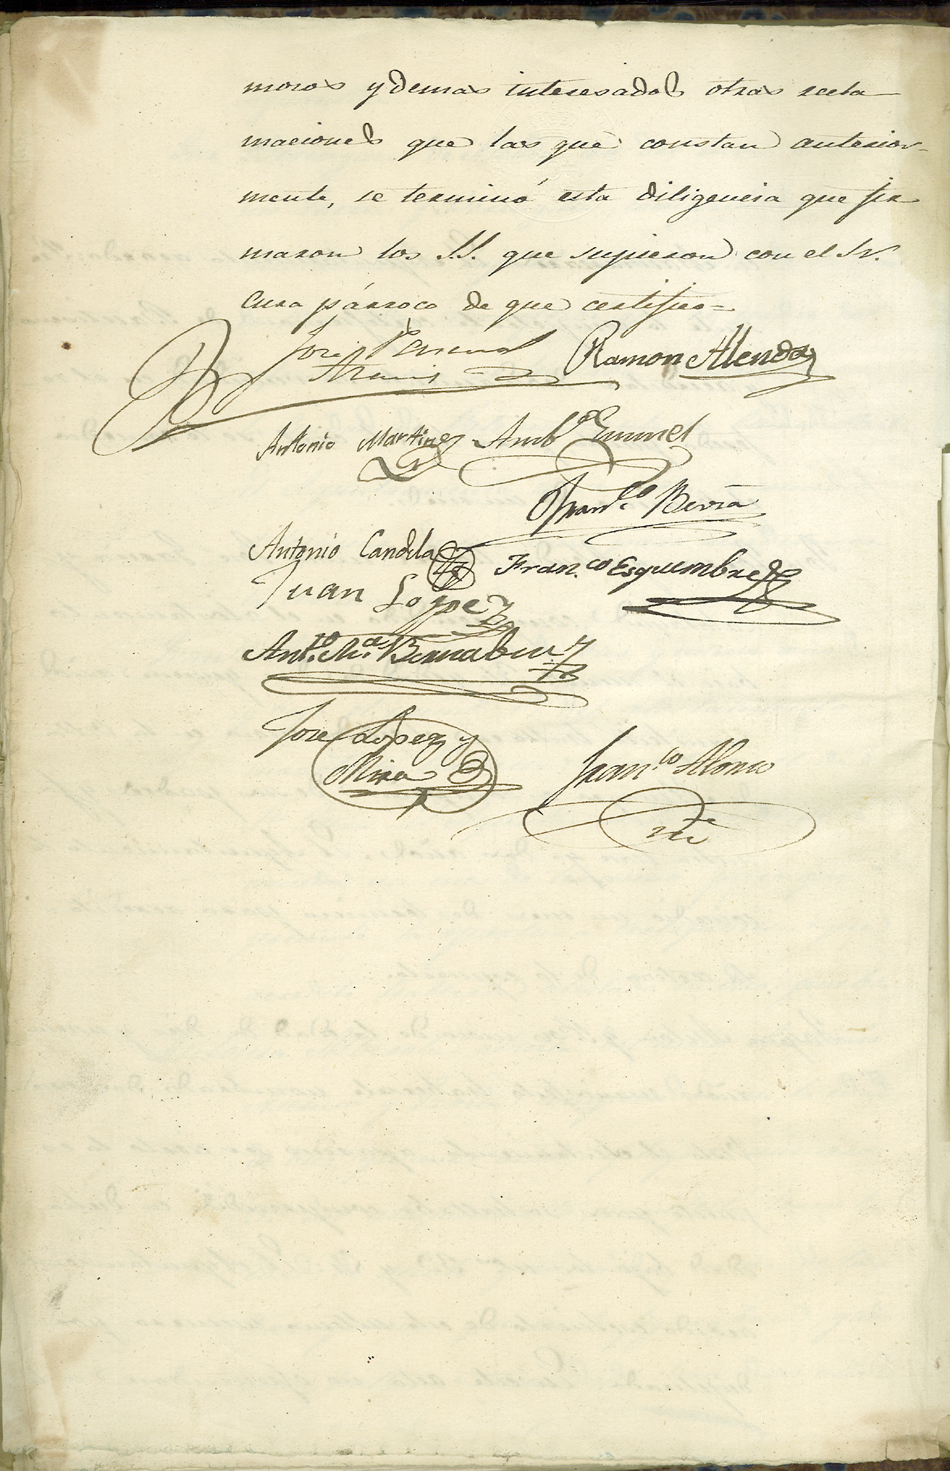 mosos y demas interesados otras recla
maciones que las que constan anterior-
mente, se terminó esta diligencia que fir
maron los SS. que supieron con el Sr.
Cura párroco de que certifico=
José
Ramon Alenda
Antonio Martinez
Ambº
Franco Berná
Antonio Candela
Franco Esquembre
Juan Lopez
Anto Ma Bernabeu
José Lopez y
Mira
Franco Alonso